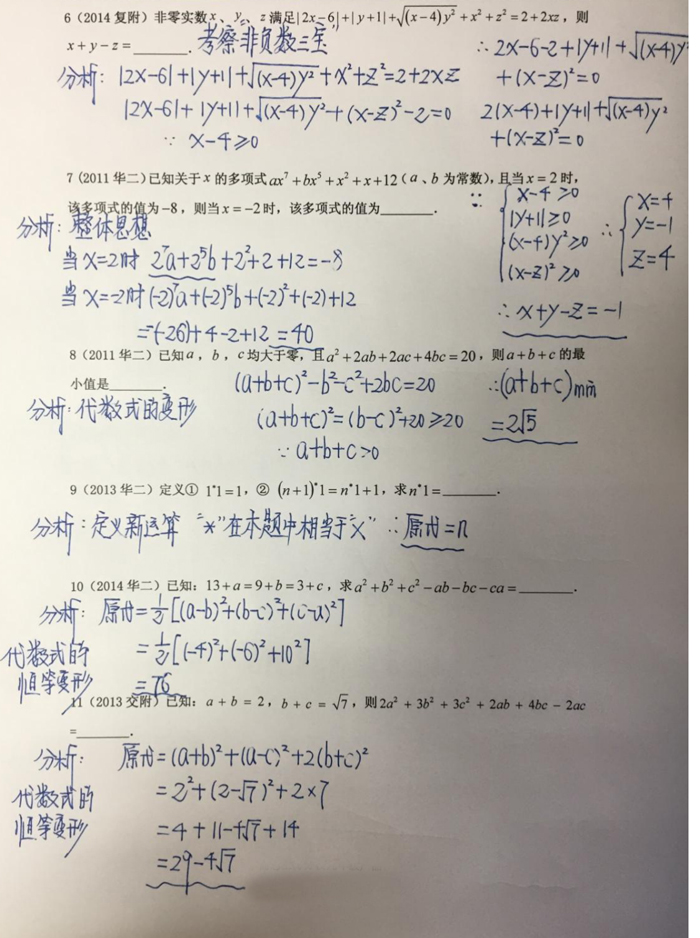 6（2014 复附）非零实数 x、y、z 满足|2x−6|+|y+1|+√((x−4)y²)+x²+z²=2+2xz，则
x+y−z=______.
考察"非负数三宝"
分析: |2x-6|+|y+1|+√((x-4)y²)+x²+z²=2+2xz
|2x-6|+|y+1|+√((x-4)y²)+(x-z)²-2=0
∵ x-4≥0
∴ 2x-6-2+|y+1|+√((x-4)y²
+(x-z)²=0
2(x-4)+|y+1|+√((x-4)y²
+(x-z)²=0
∵ { x-4≥0
|y+1|≥0
(x-4)y²≥0
(x-z)²≥0
∴ { x=4
y=-1
z=4
∴ x+y-z=-1
7 (2011 华二）已知关于 x 的多项式 ax⁷+bx⁵+x²+x+12（a、b 为常数），且当 x=2 时，
该多项式的值为−8，则当 x=−2 时，该多项式的值为______.
分析: 整体思想
当x=2时 2⁷a+2⁵b+2²+2+12=-8
当x=-2时 (-2)⁷a+(-2)⁵b+(-2)²+(-2)+12
=-(-26)+4-2+12=40
8（2011 华二）已知 a，b，c 均大于零，且 a²+2ab+2ac+4bc=20，则 a+b+c 的最
小值是______.
分析: 代数式的变形
(a+b+c)²-b²-c²+2bc=20
(a+b+c)²=(b-c)²+20≥20
∵ a+b+c>0
∴(a+b+c)min
=2√5
9（2013 华二）定义① 1*1=1，② (n+1)*1=n*1+1，求 n*1=______.
分析: 定义新运算 "*"在本题中相当于"×" ∴原式=n
10（2014 华二）已知：13+a=9+b=3+c，求 a²+b²+c²−ab−bc−ca=______.
分析: 原式=½[(a-b)²+(b-c)²+(c-a)²]
代数式的
恒等变形
=½[(-4)²+(-6)²+10²]
=76
11（2013 交附）已知：a + b = 2，b + c = √7，则 2a² + 3b² + 3c² + 2ab + 4bc − 2ac
=______.
分析: 原式=(a+b)²+(a-c)²+2(b+c)²
代数式的
恒等变形
=2²+(2-√7)²+2×7
=4+11-4√7+14
=29-4√7